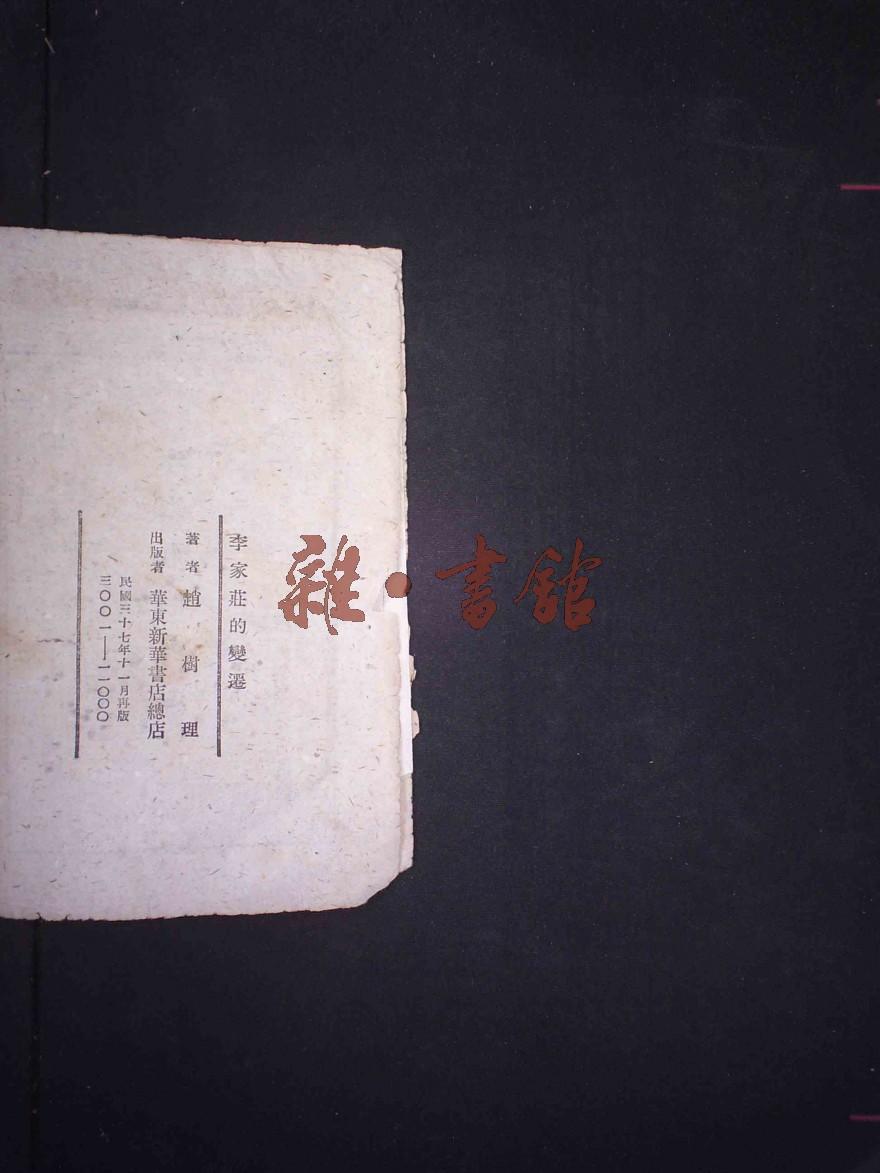 李家莊的變遷
著者 趙樹理
出版者 華東新華書店總店
民國三十七年十一月再版
三〇〇一——一一〇〇〇
雜·書館